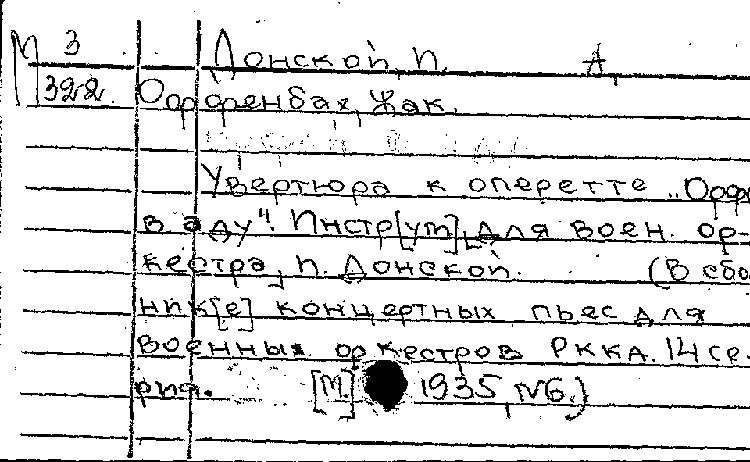 М 3 Донской, П. А.
322. Оффенбах, Жак.
Увертюра к оперетте „Орф
в аду". Инстр[ум], для воен. ор-
кестра, П. Донской. (В сбо
ник[е] концертных пьес для
военных оркестров РККА. 14 се-
рия. [М.] 1935, №6.)